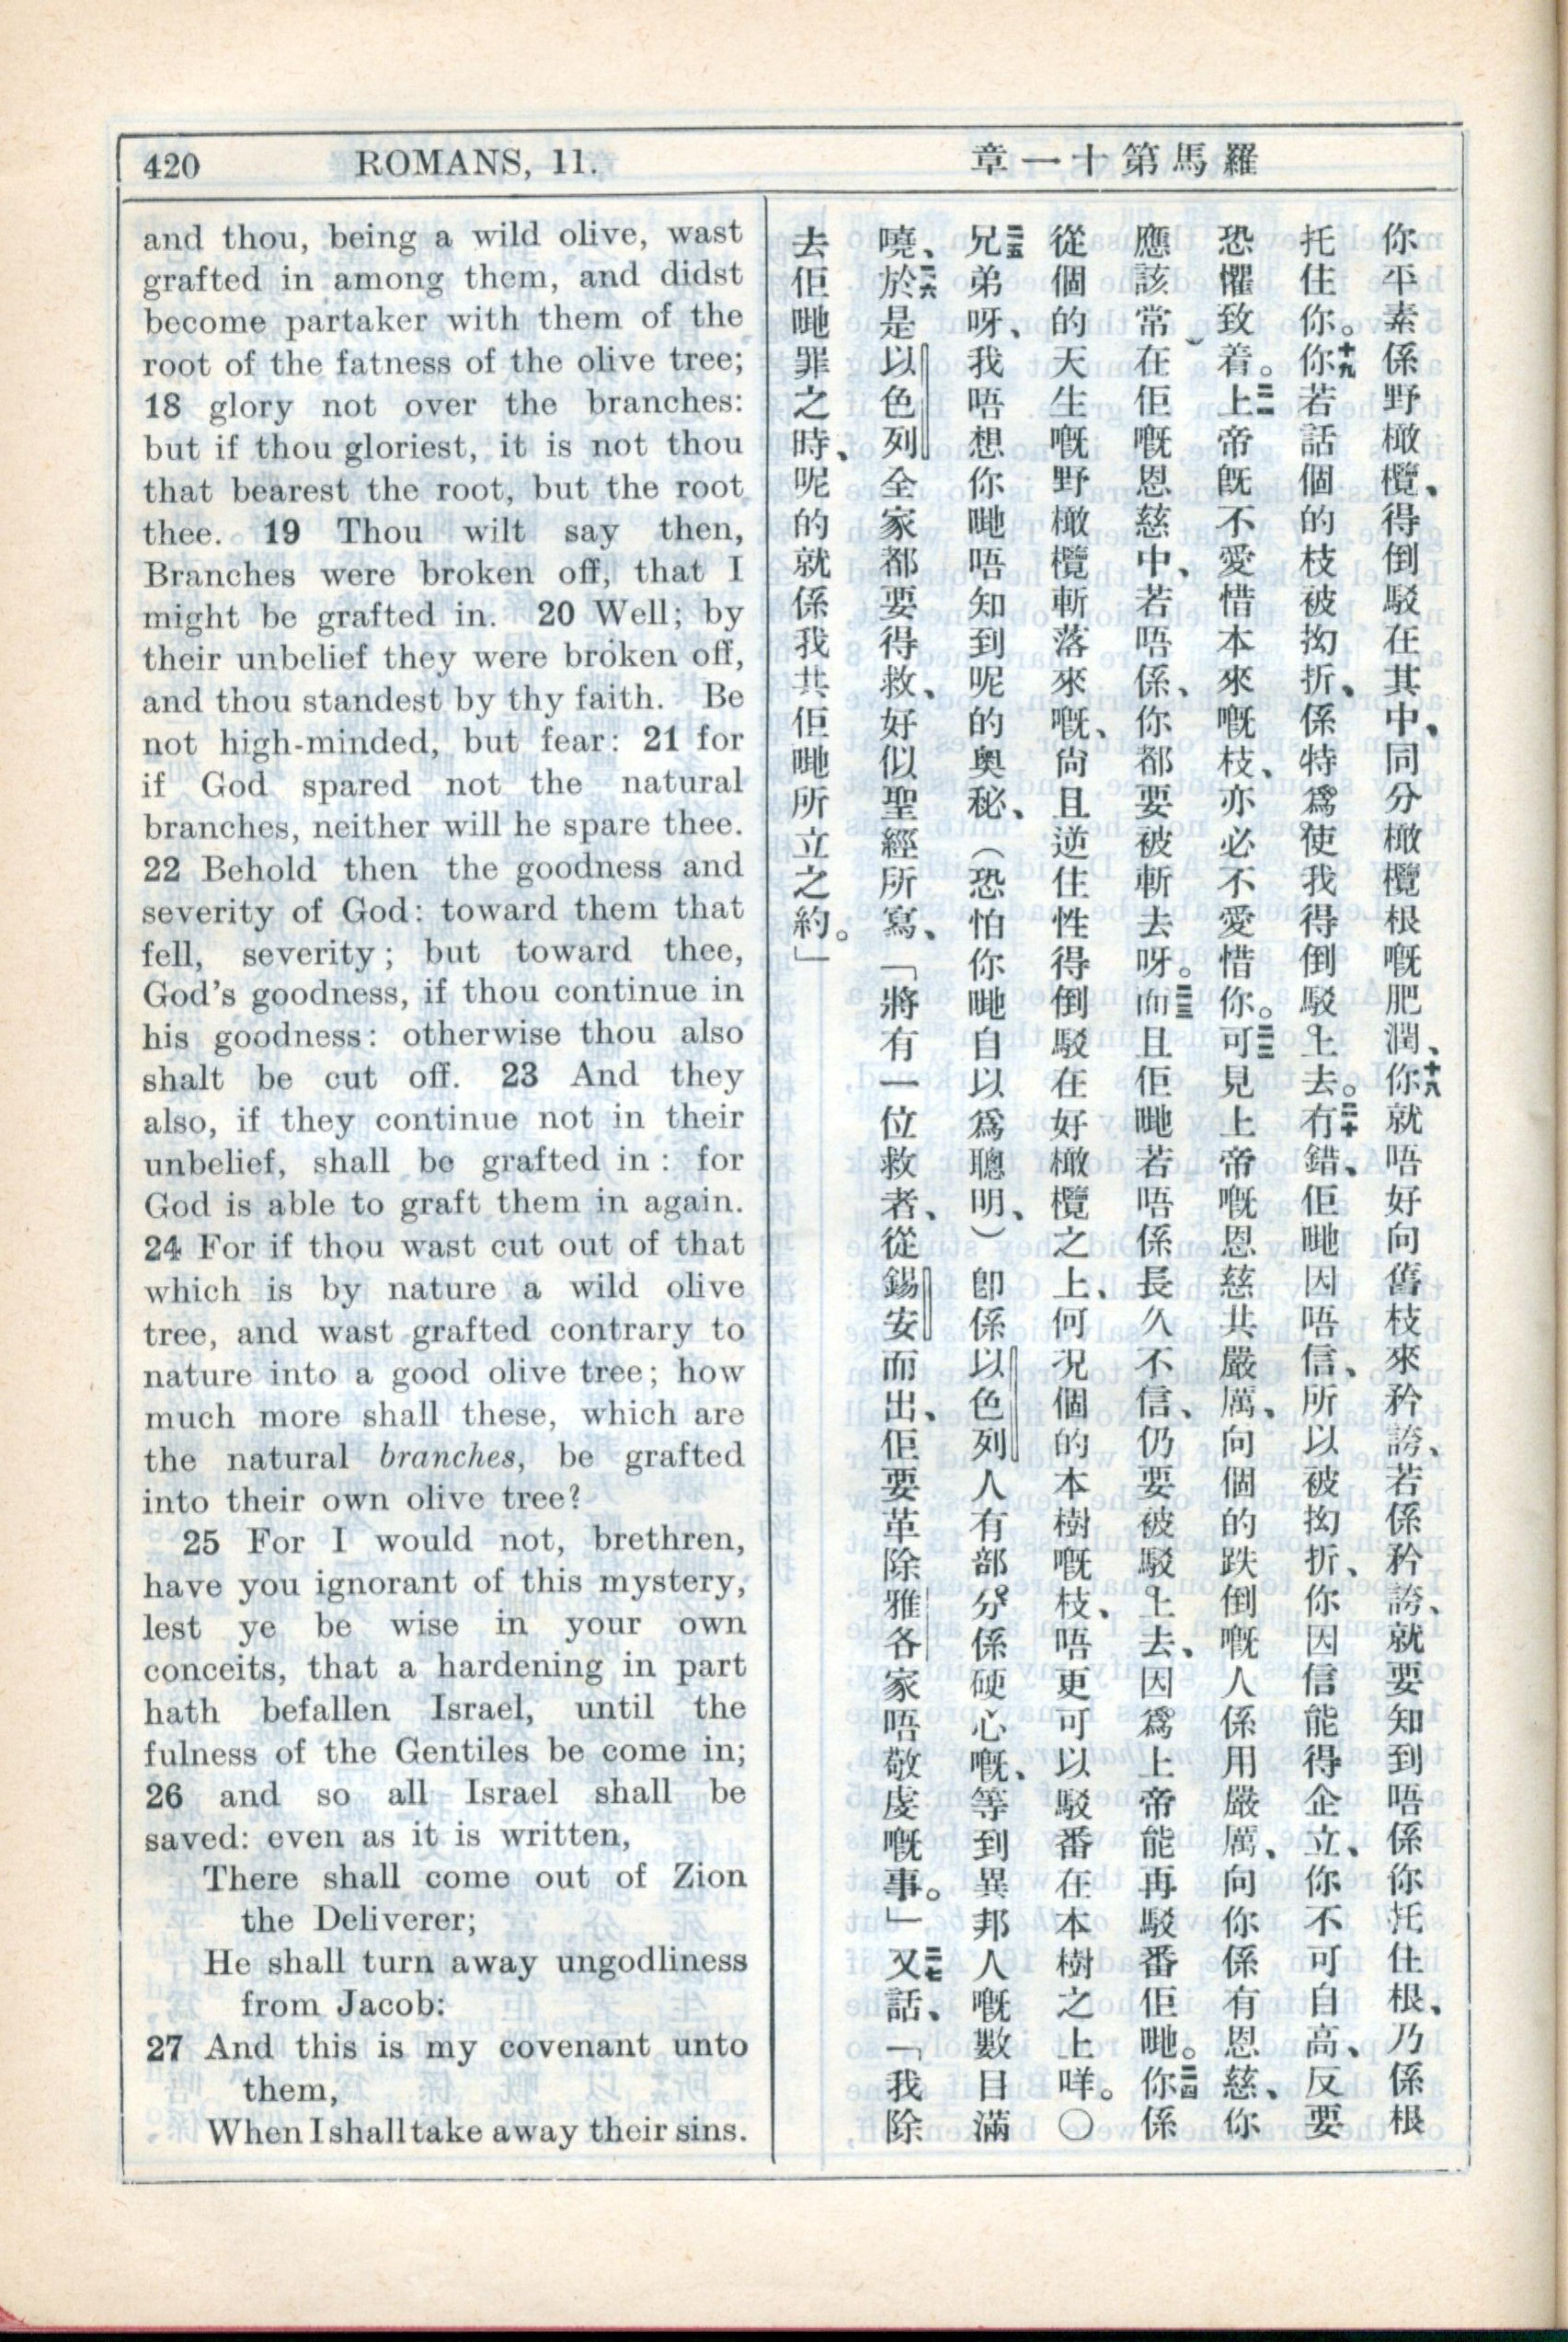 420 ROMANS, 11.
章一十第馬羅
and thou, being a wild olive, wast
grafted in among them, and didst
become partaker with them of the
root of the fatness of the olive tree;
18 glory not over the branches:
but if thou gloriest, it is not thou
that bearest the root, but the root
thee. 19 Thou wilt say then,
Branches were broken off, that I
might be grafted in. 20 Well; by
their unbelief they were broken off,
and thou standest by thy faith. Be
not high-minded, but fear: 21 for
if God spared not the natural
branches, neither will he spare thee.
22 Behold then the goodness and
severity of God: toward them that
fell, severity; but toward thee,
God's goodness, if thou continue in
his goodness: otherwise thou also
shalt be cut off. 23 And they
also, if they continue not in their
unbelief, shall be grafted in: for
God is able to graft them in again.
24 For if thou wast cut out of that
which is by nature a wild olive
tree, and wast grafted contrary to
nature into a good olive tree; how
much more shall these, which are
the natural branches, be grafted
into their own olive tree?
25 For I would not, brethren,
have you ignorant of this mystery,
lest ye be wise in your own
conceits, that a hardening in part
hath befallen Israel, until the
fulness of the Gentiles be come in;
26 and so all Israel shall be
saved: even as it is written,
There shall come out of Zion
the Deliverer;
He shall turn away ungodliness
from Jacob:
27 And this is my covenant unto
them,
When I shall take away their sins.
你平素係野橄欖、得倒駁在其中、同分橄欖根嘅肥潤、十八你就唔好向舊枝來矜誇、若係矜誇、就要知到唔係你托住根、乃係根
托住你。十九你若話個的枝被拗折、係特爲使我得倒駁上去。二十有錯、佢哋因唔信、所以被拗折、你因信能得企立、你不可自高、反要
恐懼致着。二一上帝旣不愛惜本來嘅枝、亦必不愛惜你。二二可見上帝嘅恩慈共嚴厲、向個的跌倒嘅人係用嚴厲、向你係有恩慈、你
應該常在佢嘅恩慈中、若唔係、你都要被斬去呀。二三而且佢哋若唔係長久不信、仍要被駁上去、因爲上帝能再駁番佢哋。二四你係
從個的天生嘅野橄欖斬落來嘅、尙且逆住性得倒駁在好橄欖之上、何況個的本樹嘅枝、唔更可以駁番在本樹之上咩。〇
二五兄弟呀、我唔想你哋唔知到呢的奧秘、（恐怕你哋自以爲聰明、）卽係以色列人有部分係硬心嘅、等到異邦人嘅數目滿
嘵、二六於是以色列全家都要得救、好似聖經所寫、「將有一位救者、從錫安而出、佢要革除雅各家唔敬虔嘅事。」二七又話、「我除
去佢哋罪之時、呢的就係我共佢哋所立之約。」